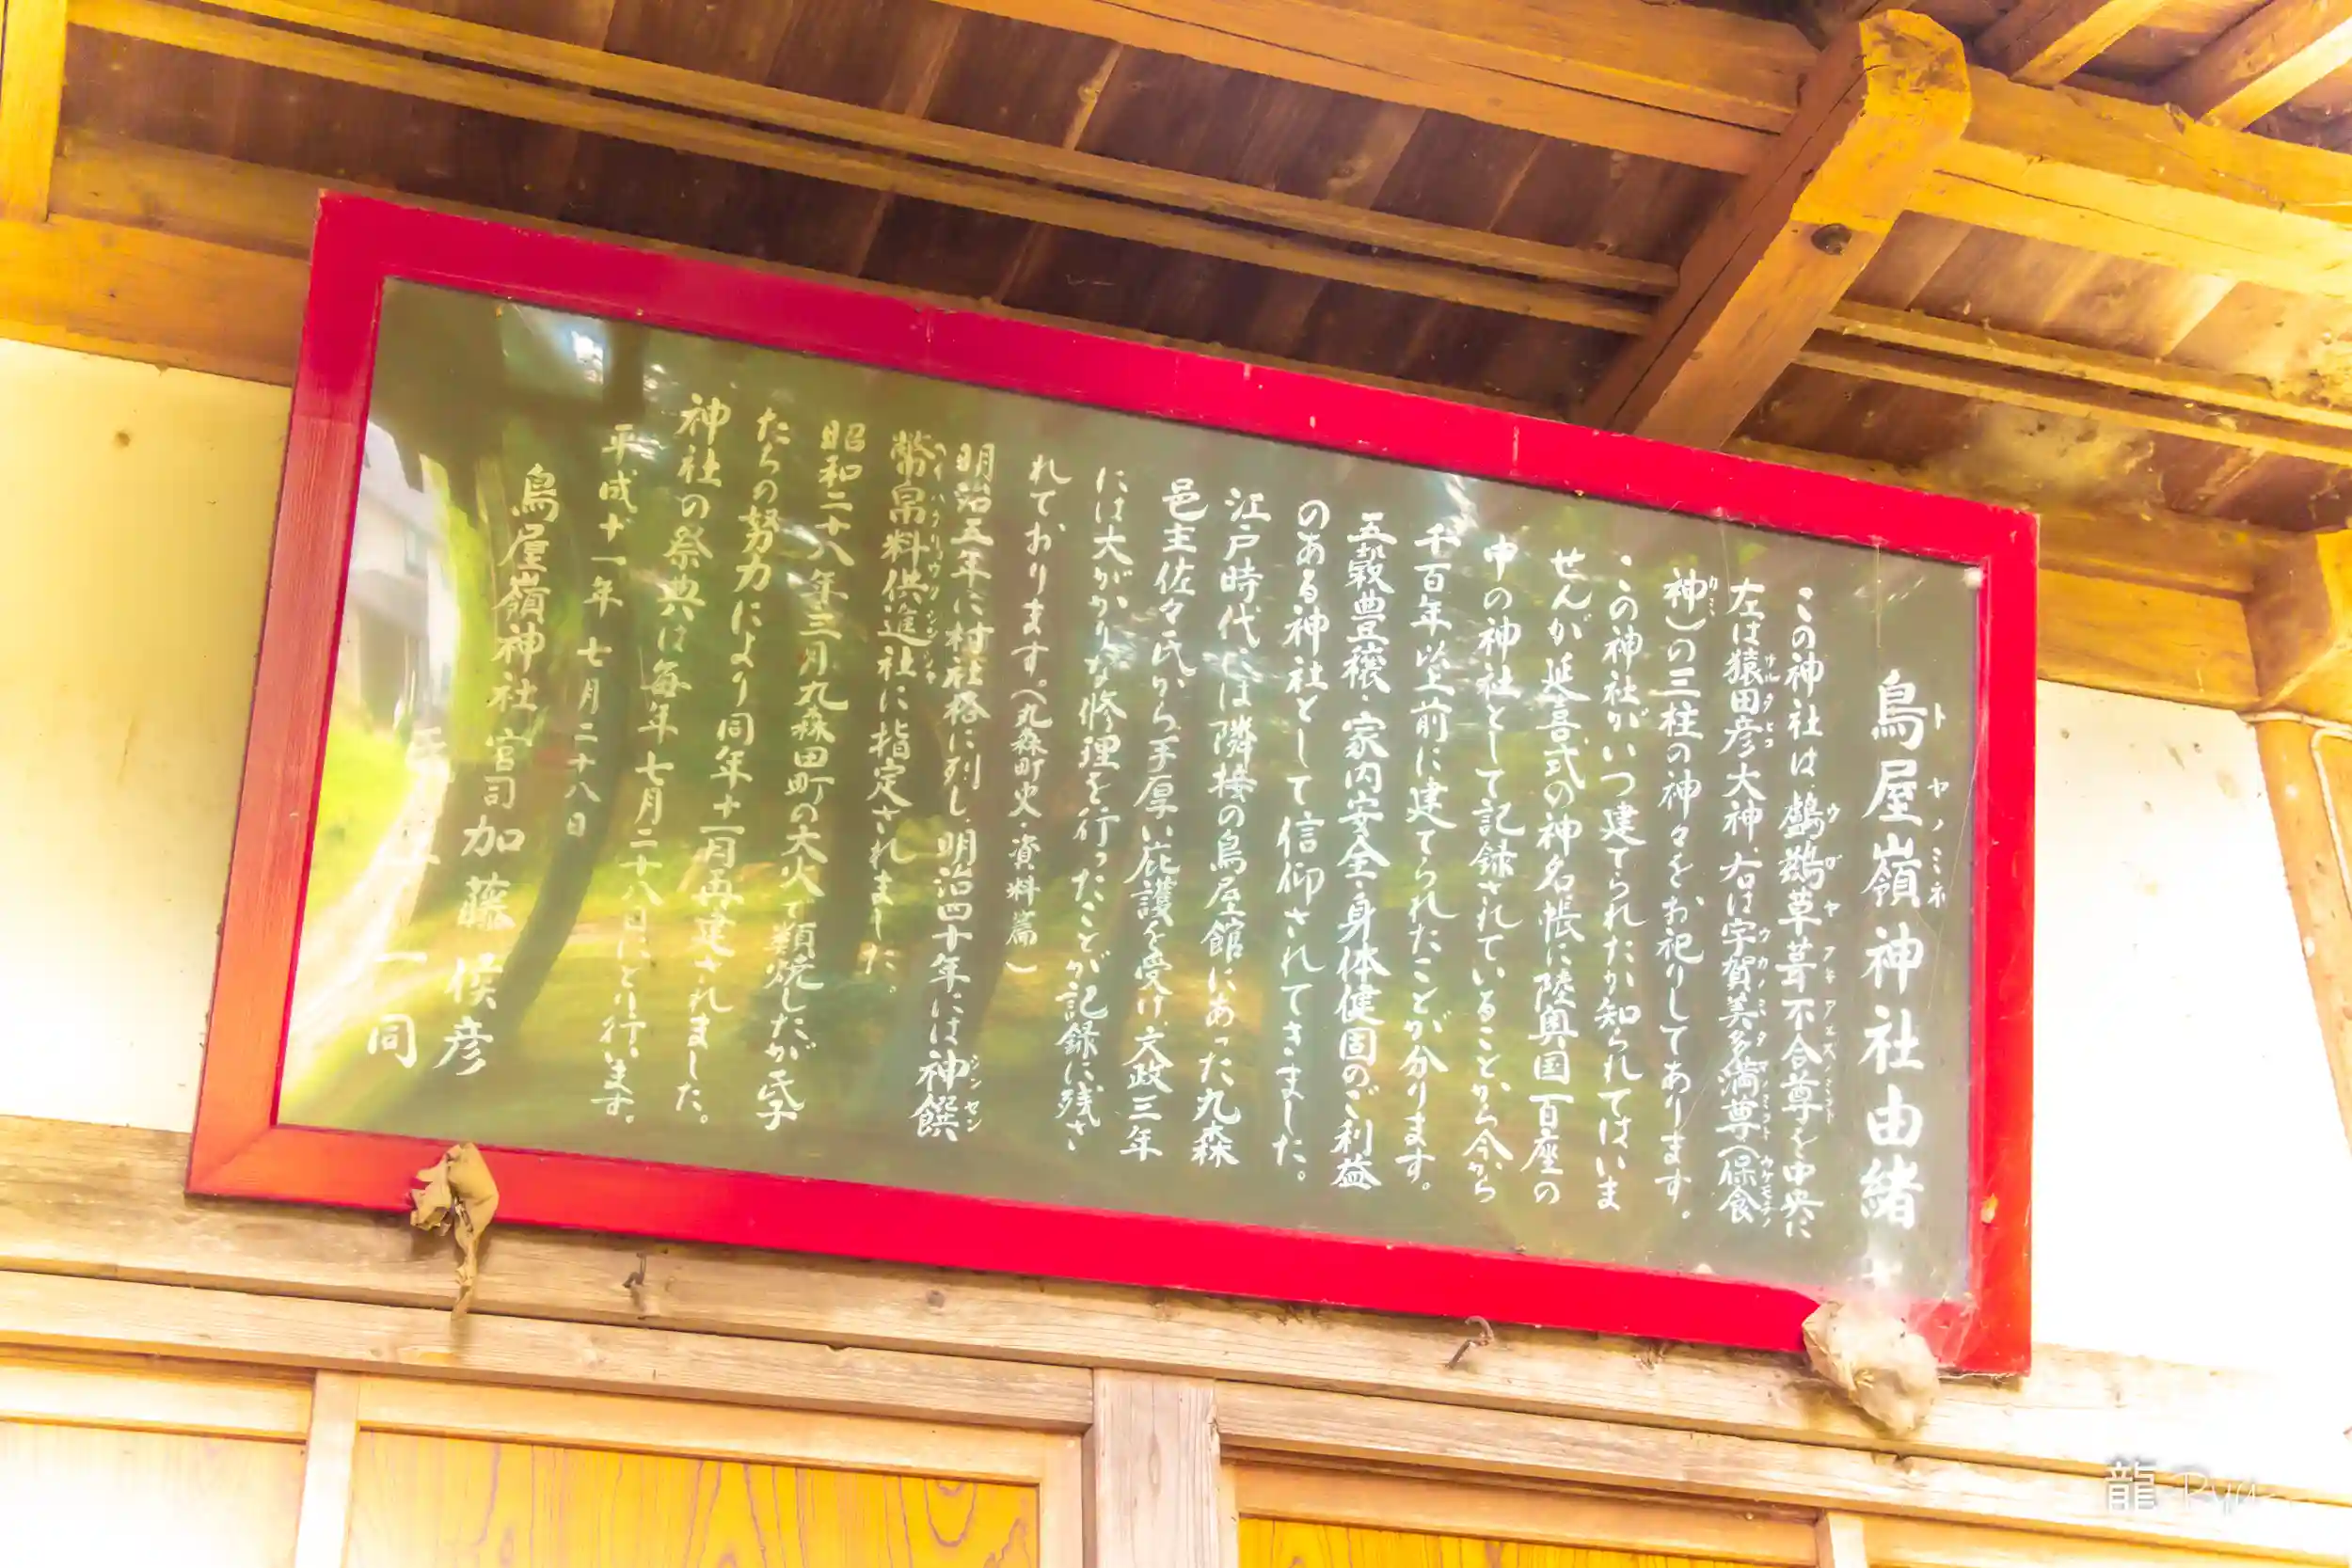 鳥屋嶺神社由緒
トヤノミネ
この神社は、鸕鷀草葺不合尊を中央に
ウガヤフキアエズノミコト
左は猿田彦大神、右は宇賀美多満尊(保食
サルタヒコ ウカノミタマノミコト ウケモチノ
神)の三柱の神々をお祀りしてあります。
カミ
この神社がいつ建てられたか知られてはいま
せんが延喜式の神名帳に陸奥国百座の
中の神社として記録されていることから今から
千百年以上前に建てられたことが分ります。
五穀豊穣・家内安全・身体健固のご利益
のある神社として信仰されてきました。
江戸時代には隣接の鳥屋館にあった丸森
邑主佐々氏から手厚い庇護を受け、文政三年
には大がかりな修理を行ったことが記録に残さ
れております。(丸森町史・資料篇)
明治五年に村社格に列し、明治四十年には神饌
シンセン
幣帛料供進社に指定されました。
ヘイハクリョウクシンシャ
昭和二十八年三月丸森田町の大火で類焼したが氏子
たちの努力により同年十一月再建されました。
神社の祭典は毎年七月二十八日にとり行います。
平成十一年 七月二十八日
鳥屋嶺神社 宮司 加藤俟彦
一同
龍 Ryu